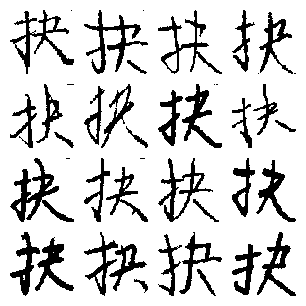 抉抉抉抉
抉抉抉抉
抉抉抉抉
抉抉抉抉